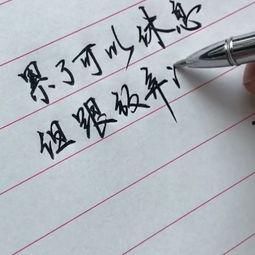 累了可以休息
放弃